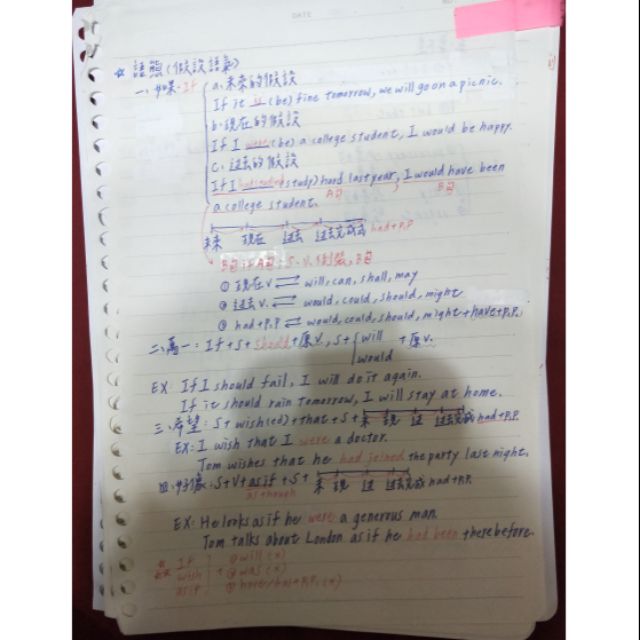 ☆ 語態(假設語氣)
一、如果:If a.未來的假設
If it is (be) fine tomorrow, we will go on a picnic.
b.現在的假設
If I were (be) a college student, I would be happy.
c.過去的假設
If I had studied (study) hard last year, I would have been
a college student.
未來 現在 過去 過去完成式 had+P.P
B句 if A句
① 現在V ⇄ will, can, shall, may
② 過去V. ⇄ would, could, should, might
③ had+P.P ⇄ would, could, should, might + have+P.P.
二、萬一: If+S+should+原V., S+ will +原V.
would
EX: If I should fail, I will do it again.
If it should rain tomorrow, I will stay at home.
三、希望: S+wish(ed)+that+S+ 未 現 過 過去完成 had+P.P
EX: I wish that I were a doctor.
Tom wishes that he had joined the party last night.
四、好像: S+V+as if+S+ 未 現 過 過去完成 had+P.P.
as though
EX: He looks as if he were a generous man.
Tom talks about London as if he had been there before.
If ① will (x)
wish + ② was (x)
as if ③ have/has+P.P. (x)